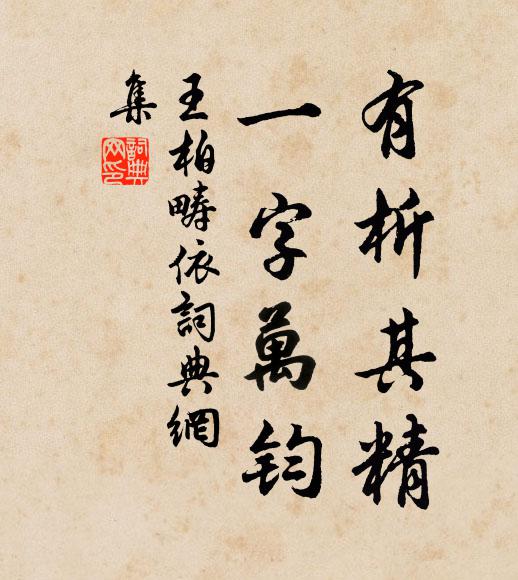 有析其精
一字萬鈞
王柏畴依詞典網
集
詞典
网印